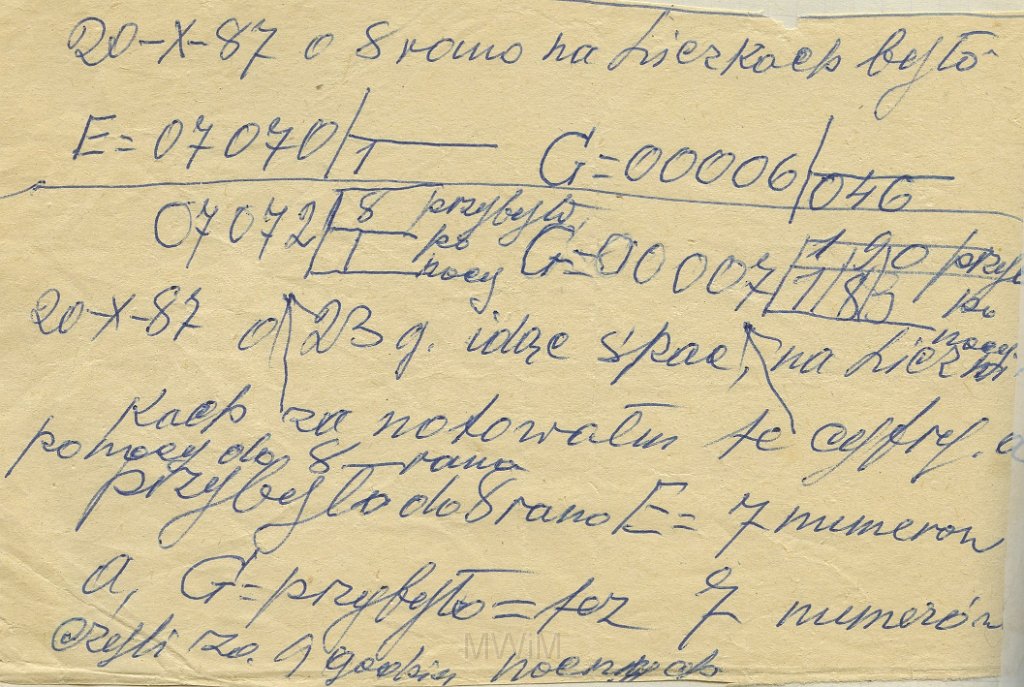 20-X-87 o 8 rano na Liczkach było
E= 07070 1 G=00006 046
07072 8 przybyło G=00007 190 przyb
1 po nocy 183 po nocy
20-X-87 o 23 g. idąc spać, na Licz
kach za notowałm te cyfry.
po nocy do 8 rano
przybyło do 8 rano E= 7 numerow
a, G=przybyło= tez 7 numerów
czyli za 9 godzin nocnych
MWiM